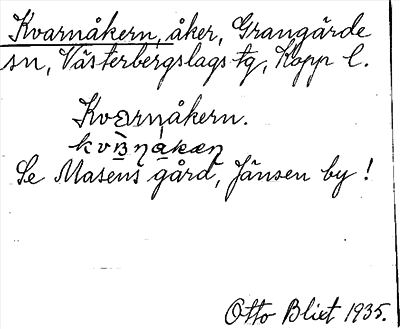 Kvarnåkern, åker, Grangärde
sn, Västerbergslags tg, Kopp l.
Kvarnåkern.
Se Masens gård, Jänsen by!
Otto Blixt 1935.